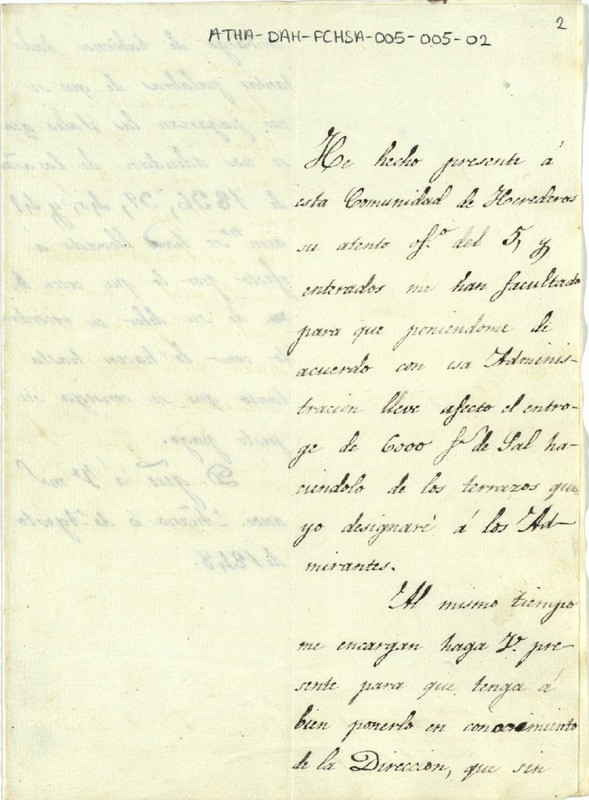 2
ATHA-DAH-FCHSA-005-005-02
He hecho presente á
esta Comunidad de Herederos
su atento of.º del 5, y
enterados me han facultado
para que poniendome de
acuerdo con esa Adminis-
tracion lleve afecto el entro-
ge de 6000 f.s de Sal ha-
ciendolo de los terrazos que
yo designaré á los Ad-
mirantes.
Al mismo tiempo
me encargan haga V. pre-
sente para que tenga á
bien ponerlo en conocimiento
de la Direccion, que sin